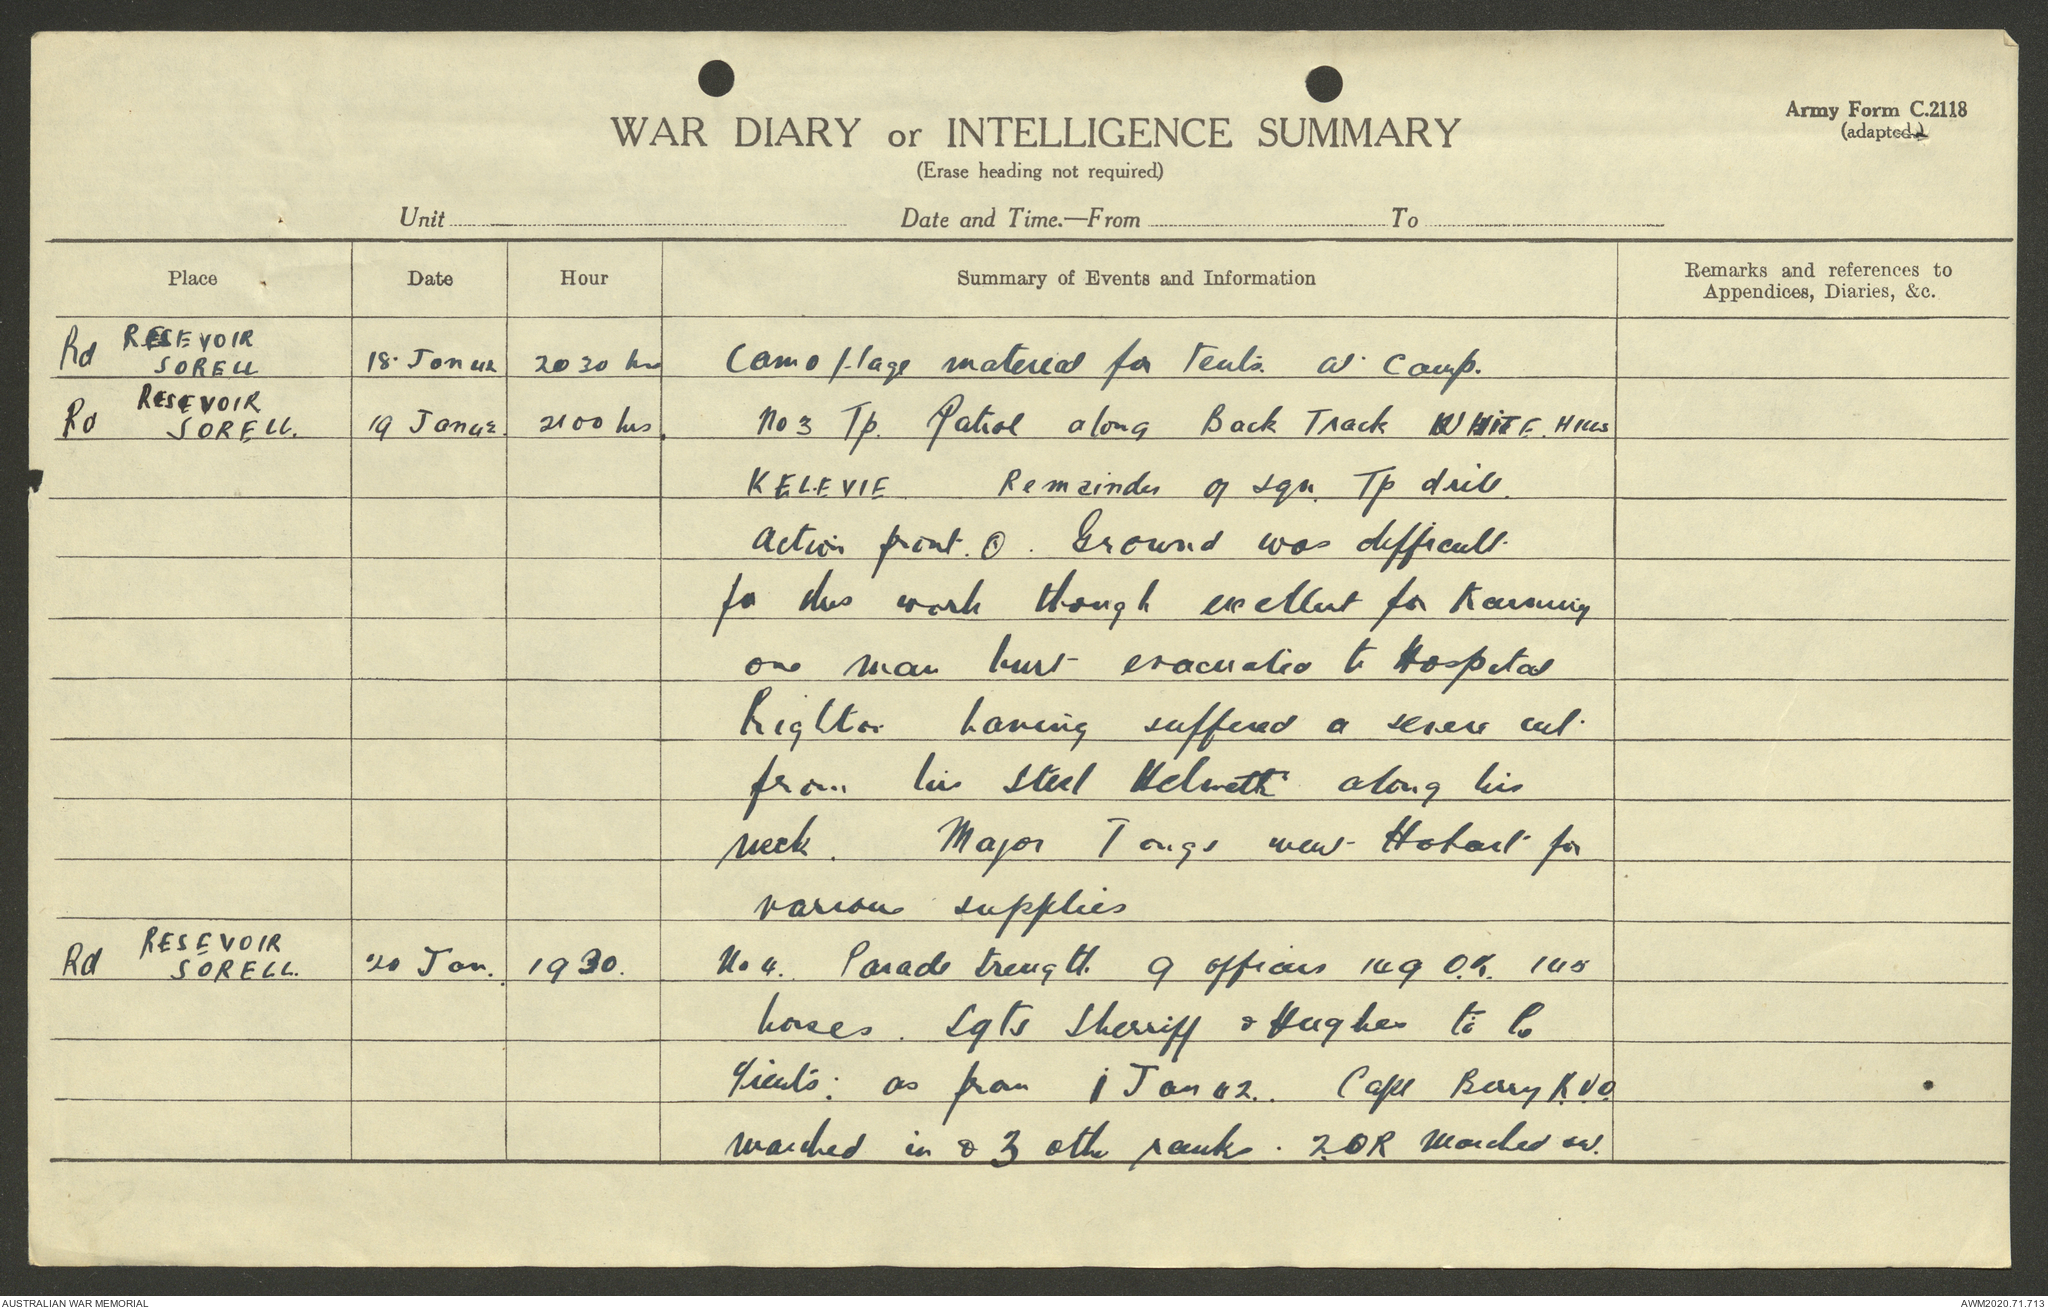 Army Form C.2118
(adapted.)
WAR DIARY or INTELLIGENCE SUMMARY
(Erase heading not required)
Unit Date and Time.—From To
Place Date Hour Summary of Events and Information Remarks and references to Appendices, Diaries, &c.
Rd RESEVOIR
SORELL 18 Jan 42 2030 hrs Camoflage material for Tents at Camp.
Rd RESEVOIR
SORELL. 19 Jan 42. 2100 hrs. No 3 Tp. Patrol along Back Track WHITE HILLS
KELEVIE Remainder of Sqn. Tp drill.
Action front. Ground was difficult
for this work though excellent for training
one man hurt evacuated to Hospital
having suffered a severe cut
from his Steel Helmett along his
neck. Major Tongs went Hobart for
various supplies
Rd RESEVOIR
SORELL. 20 Jan. 1930. No 4. Parade strength 9 officers 149 O.R. 145
horses. Sgts Sherriff & Hughes to be
Lieuts: as from 1 Jan 42. Capt Berry R.V.O.
marched in & 3 other ranks. 2 OR Marched out.
AUSTRALIAN WAR MEMORIAL
AWM2020.71.713